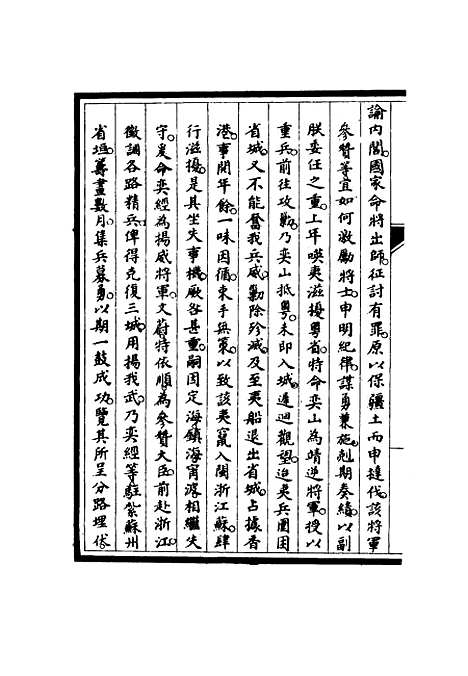 諭內閣國家命將出師征討有罪原以保疆土而申撻伐該將軍
參贊等宜如何激勵將士申明紀律謀勇兼施剋期奏績以副
朕委任之重上年㖦夷滋擾粵省特命奕山為靖逆將軍授以
重兵前往攻勦乃奕山抵粵未即入城遷迴觀望迨夷兵圍困
省城又不能奮我兵威勦除殄滅及至夷船退出省城占據香
港事閱年餘一味因循束手無策以致該夷竄入閩浙江蘇肆
行滋擾是其坐失事機厥咎甚重嗣因定海鎮海甯波相繼失
守爰命奕經為揚威將軍文蔚特依順為參贊大臣前赴浙江
徵調各路精兵俾得克復三城用揚我武乃奕經等駐紮蘇州
省垣籌畫數月集兵募勇以期一鼓成功覽其所呈分路埋伏